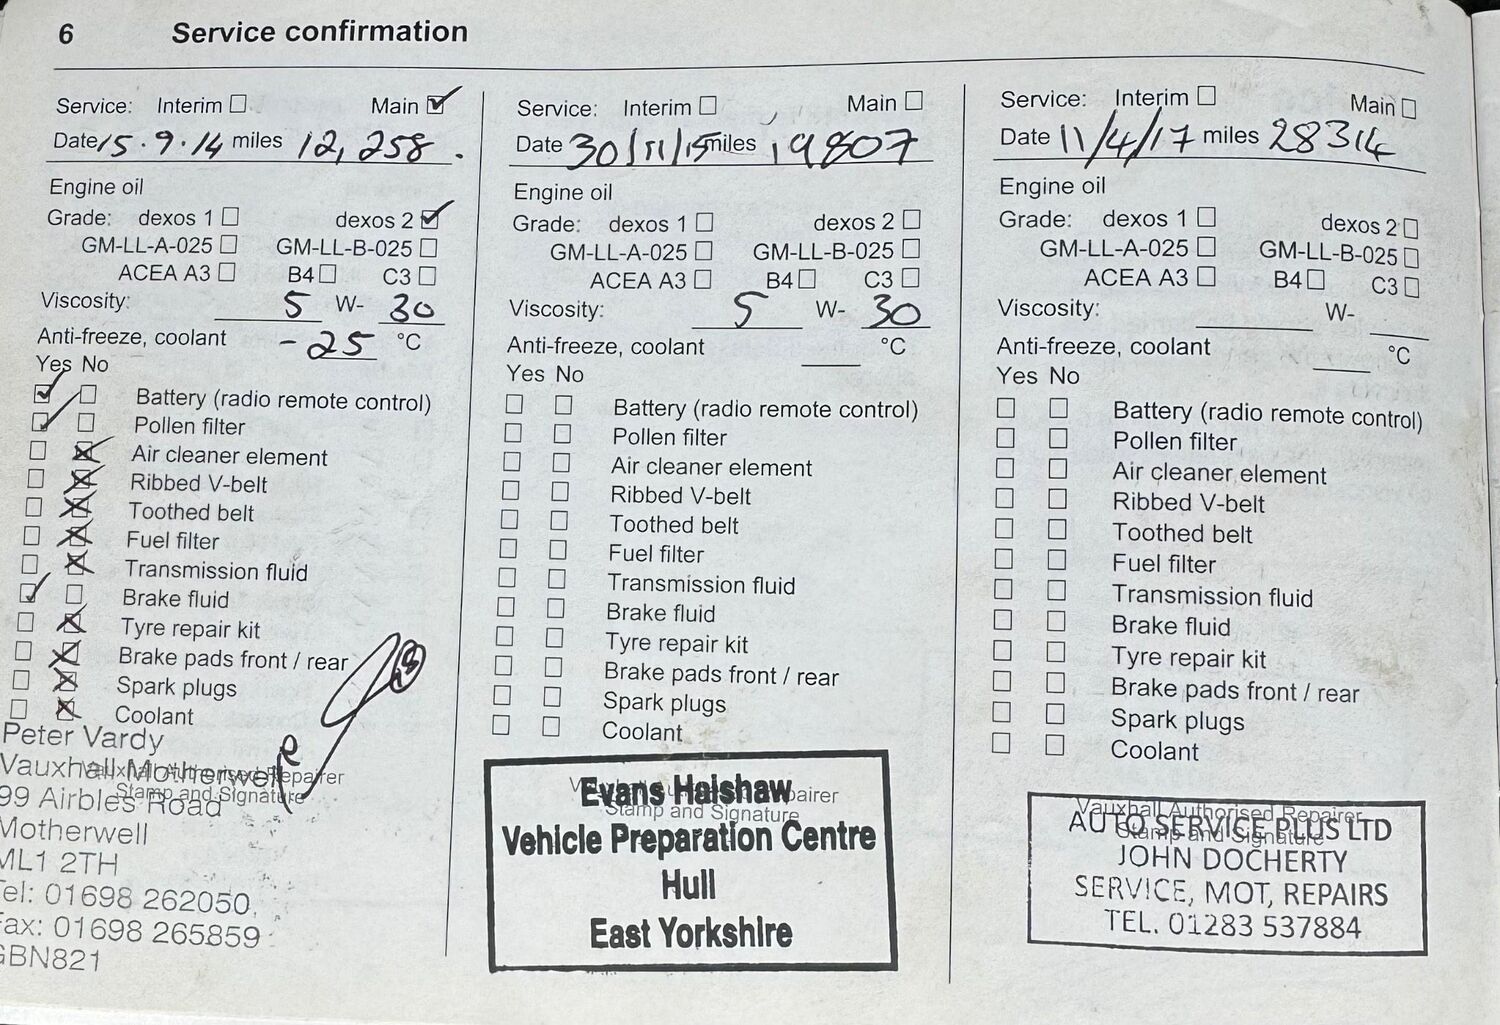 6 Service confirmation
Service: Interim Main
Date 15.9.14 miles 12,258.
Engine oil
Grade: dexos 1 dexos 2
GM-LL-A-025 GM-LL-B-025
ACEA A3 B4 C3
Viscosity: 5 W- 30
Anti-freeze, coolant -25 °C
Yes No
Battery (radio remote control)
Pollen filter
Air cleaner element
Ribbed V-belt
Toothed belt
Fuel filter
Transmission fluid
Brake fluid
Tyre repair kit
Brake pads front / rear
Spark plugs
Coolant
Peter Vardy
Vauxhall Motherwell
Vauxhall Authorised Repairer
Stamp and Signature
99 Airbles Road
Motherwell
ML1 2TH
Tel: 01698 262050
Fax: 01698 265859
GBN821
Service: Interim Main
Date 30/11/15 miles 19807
Engine oil
Grade: dexos 1 dexos 2
GM-LL-A-025 GM-LL-B-025
ACEA A3 B4 C3
Viscosity: 5 W- 30
Anti-freeze, coolant °C
Yes No
Battery (radio remote control)
Pollen filter
Air cleaner element
Ribbed V-belt
Toothed belt
Fuel filter
Transmission fluid
Brake fluid
Tyre repair kit
Brake pads front / rear
Spark plugs
Coolant
Vauxhall Authorised Repairer
Stamp and Signature
Evans Halshaw
Vehicle Preparation Centre
Hull
East Yorkshire
Service: Interim Main
Date 11/4/17 miles 28314
Engine oil
Grade: dexos 1 dexos 2
GM-LL-A-025 GM-LL-B-025
ACEA A3 B4 C3
Viscosity: W-
Anti-freeze, coolant °C
Yes No
Battery (radio remote control)
Pollen filter
Air cleaner element
Ribbed V-belt
Toothed belt
Fuel filter
Transmission fluid
Brake fluid
Tyre repair kit
Brake pads front / rear
Spark plugs
Coolant
Vauxhall Authorised Repairer
Stamp and Signature
AUTO SERVICE PLUS LTD
JOHN DOCHERTY
SERVICE, MOT, REPAIRS
TEL. 01283 537884